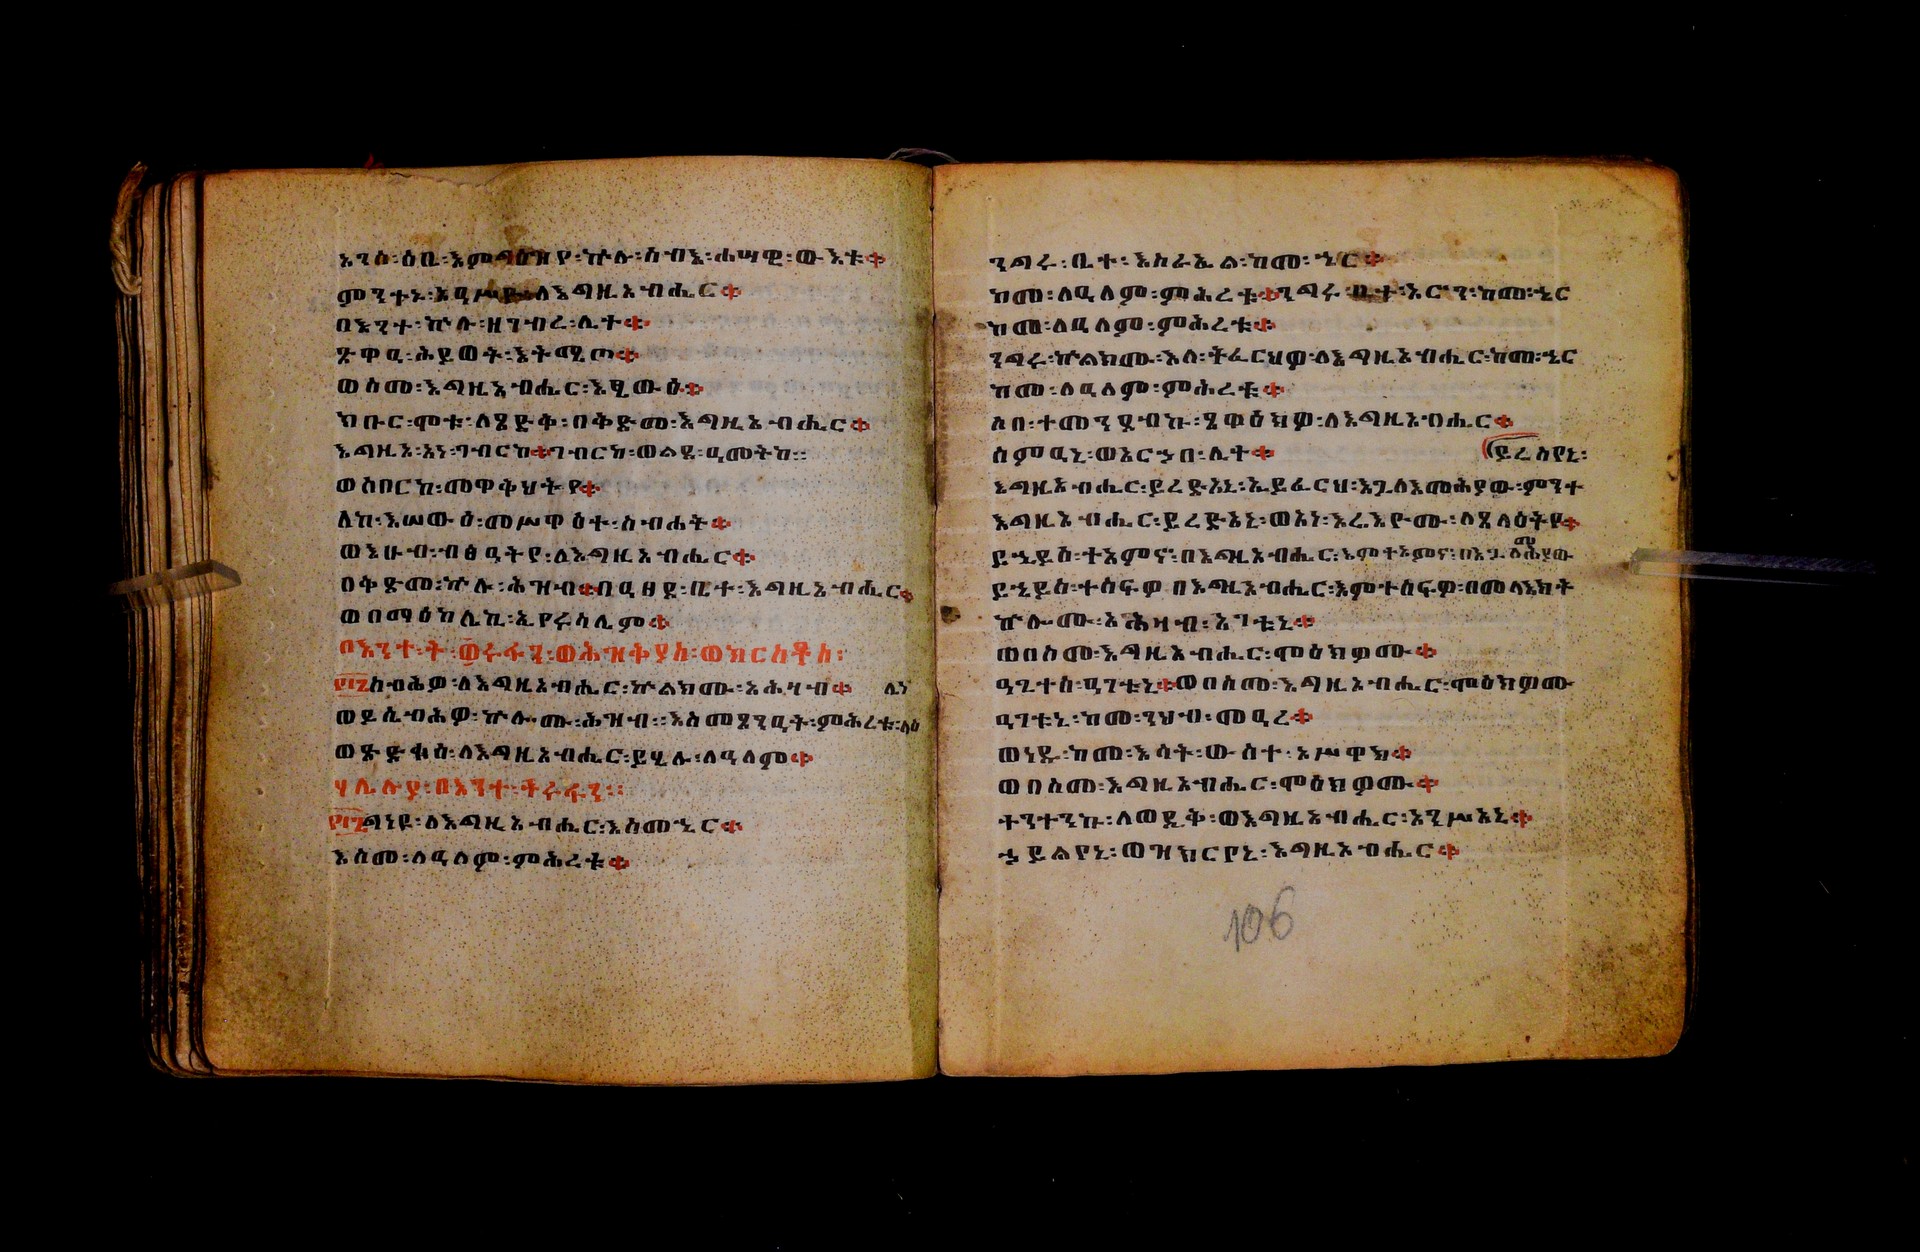 አንሰ፡ ዕቤ፡ እምግዕዝየ፡ ኵሉ፡ ሰብእ፡ ሐሣዊ፡ ውእቱ።
ምንተኑ፡ አዐሥይ፡ ለእግዚአብሔር።
በእንተ፡ ኵሉ፡ ዘገብረ፡ ሊተ።
ጽዋዐ፡ ሕይወት፡ እትሜጦ።
ወስመ፡ እግዚአብሔር፡ እጼውዕ።
ክቡር፡ ሞቱ፡ ለጻድቅ፡ በቅድመ፡ እግዚአብሔር።
እግዚአ፡ አነ፡ ገብርከ።ገብርከ፡ ወልደ፡ ዓመትከ።
ወሰበርከ፡ መዋቅህትየ።
ለከ፡ እሠውዕ፡ መሥዋዕተ፡ ስብሐት።
ወእሁብ፡ ብፅዓትየ፡ ለእግዚአብሔር።
በቅድመ፡ ኵሉ፡ ሕዝብ።በዓፀደ፡ ቤተ፡ እግዚአብሔር።
ወበማዕከሌኪ፡ ኢየሩሳሌም።
በእንተ፡ ት
ስብሕዎ፡ ለእግዚአብሔር፡ ኵልክሙ፡ አሕዛብ።
ወይሴብሕዎ፡ ኵሎሙ፡ ሕዝብ። እስመ ጸንዐት፡ ምሕረቱ፡
ወጽድቁሰ፡ ለእግዚአብሔር፡ ይሄሉ፡ ለዓለም።
ሃሌሉያ፡ በእንተ፡ ትሩፋን።
ግነዩ፡ ለእግዚአብሔር፡ እስመ ኄር።
እስመ፡ ለዓለም፡ ምሕረቱ።
ንግሩ፡ ቤተ፡ እስራኤል፡ ከመ፡ ኄር።
ከመ፡ ለዓለም፡ ምሕረቱ።ንግሩ፡ ቤተ፡ አሮን፡ ከመ፡ ኄር
ከመ፡ ለዓለም፡ ምሕረቱ።
ንግሩ፡ ኵልክሙ፡ እለ፡ ትፈርህዎ፡ ለእግዚአብሔር፡ ከመ፡ ኄር
ከመ፡ ለዓለም፡ ምሕረቱ።
ሶበ፡ ተመንደብኩ፡ ጸዋዕክዎ፡ ለእግዚአብሔር።
ሰምዐኒ፡ ወአርኃበ፡ ሊተ። ይረስየኒ፡
እግዚአብሔር፡ ይረድአኒ፡ ኢይፈርህ፡ እጓለእመሕያው፡ ምንተ
እግዚአብሔር፡ ይረድአኒ፡ ወአነ፡ እሬእዮሙ፡ ለጸላዕትየ።
ይኄይስ፡ ተአምኖ፡ በእግዚአብሔር፡ እምተአምኖ፡ በእጓለመሕያው
ይኄይስ፡ ተሰፍዎ በእግዚአብሔር፡ እምተሰፍዎ፡ በመላእክት
ኵሎሙ፡ አሕዛብ፡ አገቱኒ።
ወበስመ፡ እግዚአብሔር፡ ሞዕክዎሙ።
ዓጊተሰ፡ ዓገቱኒ።ወበስመ፡ እግዚአብሔር፡ ሞዕክዎሙ
ዓገቱኒ፡ ከመ፡ ንህብ፡ መዓረ።
ወነዱ፡ ከመ፡ እሳት፡ ውስተ፡ አሥዋክ።
ወበስመ፡ እግዚአብሔር፡ ሞዕክዎሙ።
ተንተንኩ፡ ለወዲቅ፡ ወእግዚአብሔር፡ አንሥአኒ።
ኃይልየኒ፡ ወዝክርየኒ፡ እግዚአብሔር።
106